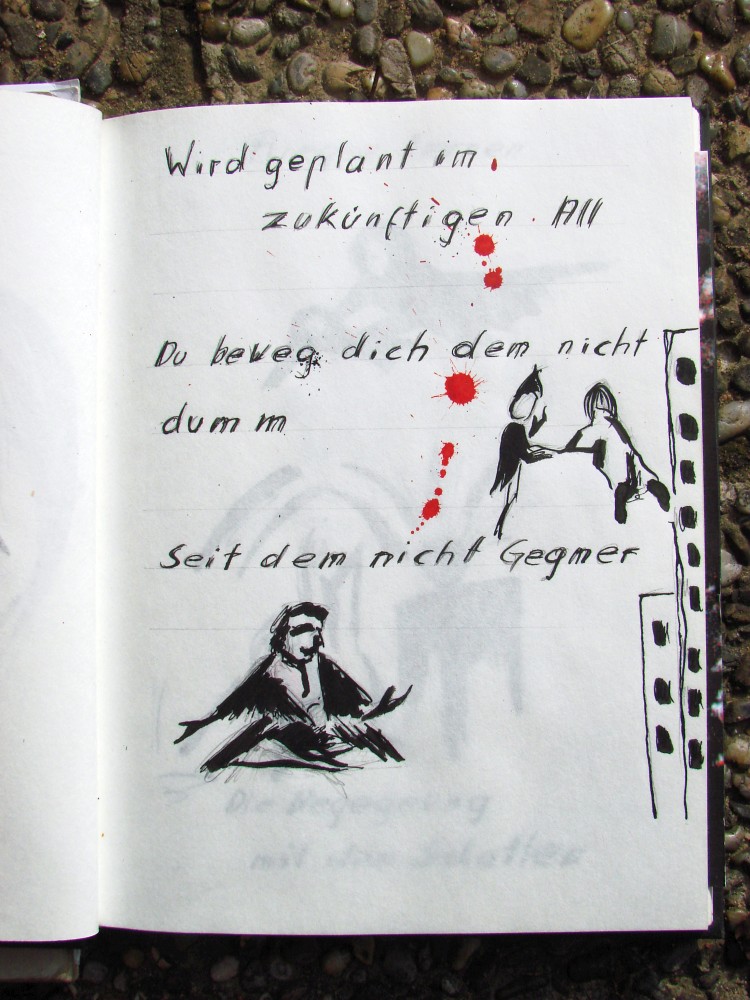 Wird geplant im
zukünftigen All
Du beweg dich dem nicht
dumm
Seit dem nicht Gegner
mit dem